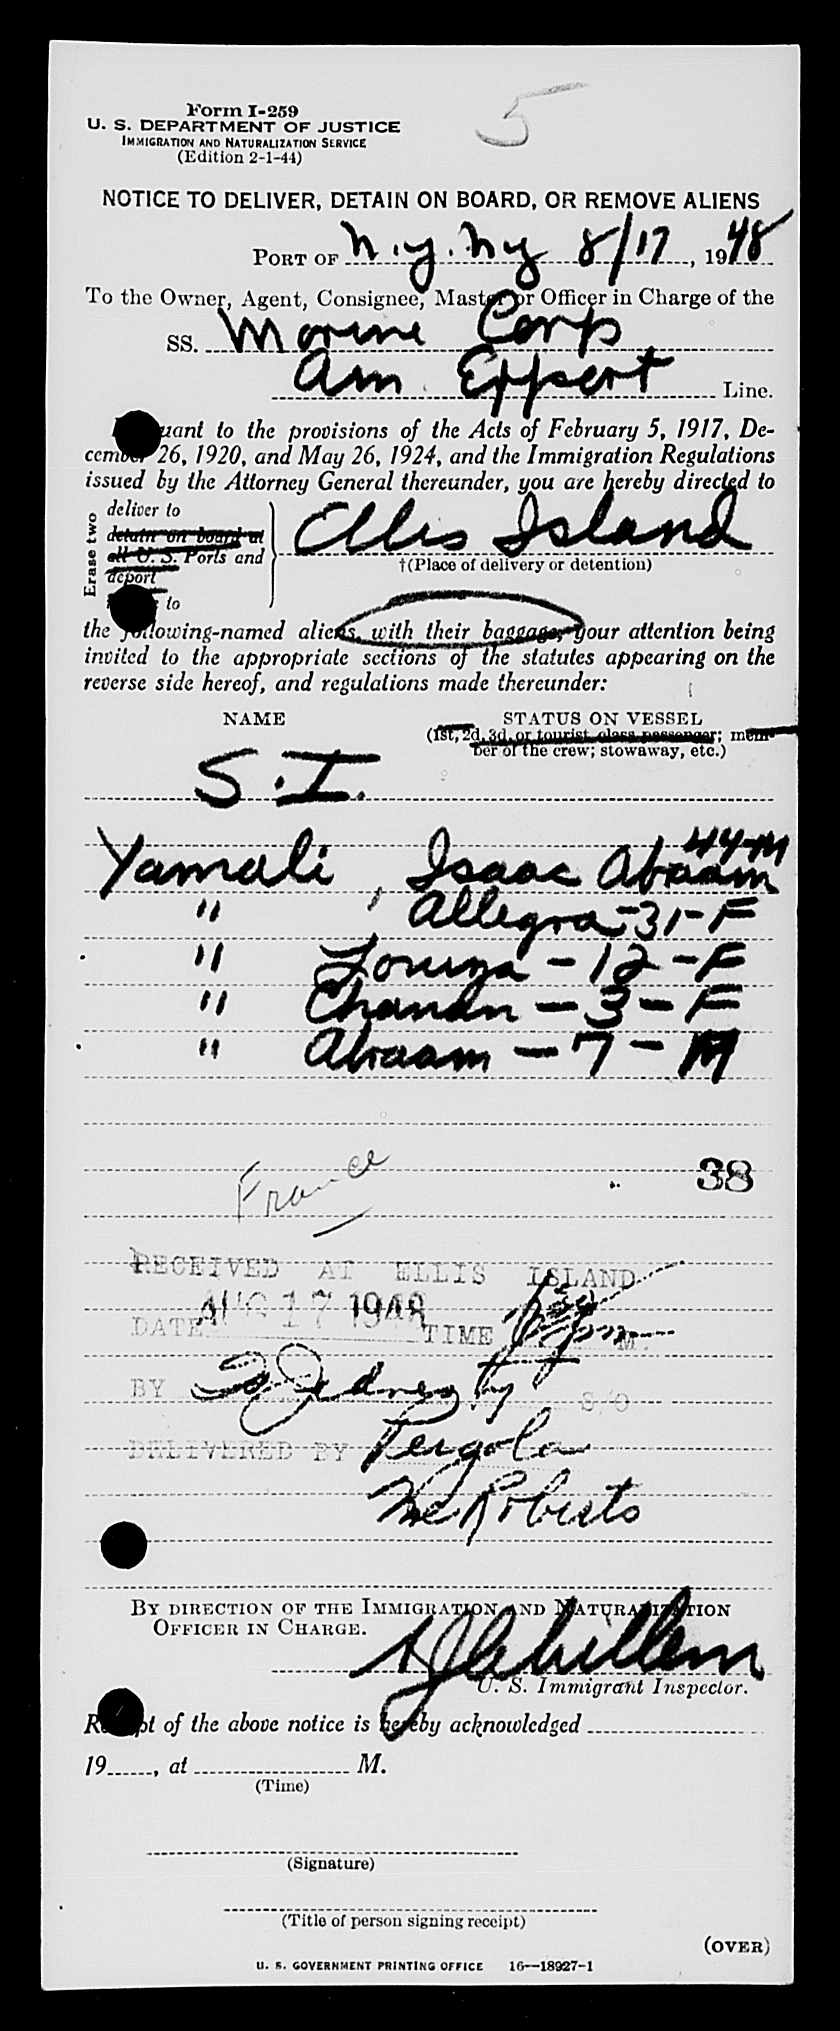 5
Form I-259
U. S. DEPARTMENT OF JUSTICE
IMMIGRATION AND NATURALIZATION SERVICE
(Edition 2-1-44)
NOTICE TO DELIVER, DETAIN ON BOARD, OR REMOVE ALIENS
PORT OF N.Y. NY 8/17, 1948
To the Owner, Agent, Consignee, Master or Officer in Charge of the
SS. Marine Corp
Am. Export Line.
uant to the provisions of the Acts of February 5, 1917, De-
cember 26, 1920, and May 26, 1924, and the Immigration Regulations
issued by the Attorney General thereunder, you are hereby directed to
Erase two
deliver to
detain on board at
all U. S. Ports and
deport
to
Ellis Island
†(Place of delivery or detention)
the following-named aliens, with their baggage, your attention being
invited to the appropriate sections of the statutes appearing on the
reverse side hereof, and regulations made thereunder:
NAME STATUS ON VESSEL
(1st, 2d, 3d, or tourist class passenger; mem-
ber of the crew; stowaway, etc.)
S.I.
Yamali, Isaac Abraam 44-M
" , Allegra-31-F
" Louiza - 12 - F
" Chanan - 3 - F
" Abraam - 7 - M
38
France
RECEIVED AT ELLIS ISLAND
DATE AUG 17 1948 TIME M.
BY S/O
DELIVERED BY Pergola
McRoberts
BY DIRECTION OF THE IMMIGRATION AND NATURALIZATION
OFFICER IN CHARGE.
U. S. Immigrant Inspector.
Receipt of the above notice is hereby acknowledged
19, at M.
(Time)
(Signature)
(Title of person signing receipt)
(OVER)
U. S. GOVERNMENT PRINTING OFFICE 16—18927-1